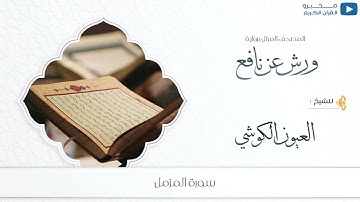 محبرو
القرآن الكريم
المصحف المرتل برواية
ورش عن نافع
للشيخ :
العيون الكوشي
سورة المزمل